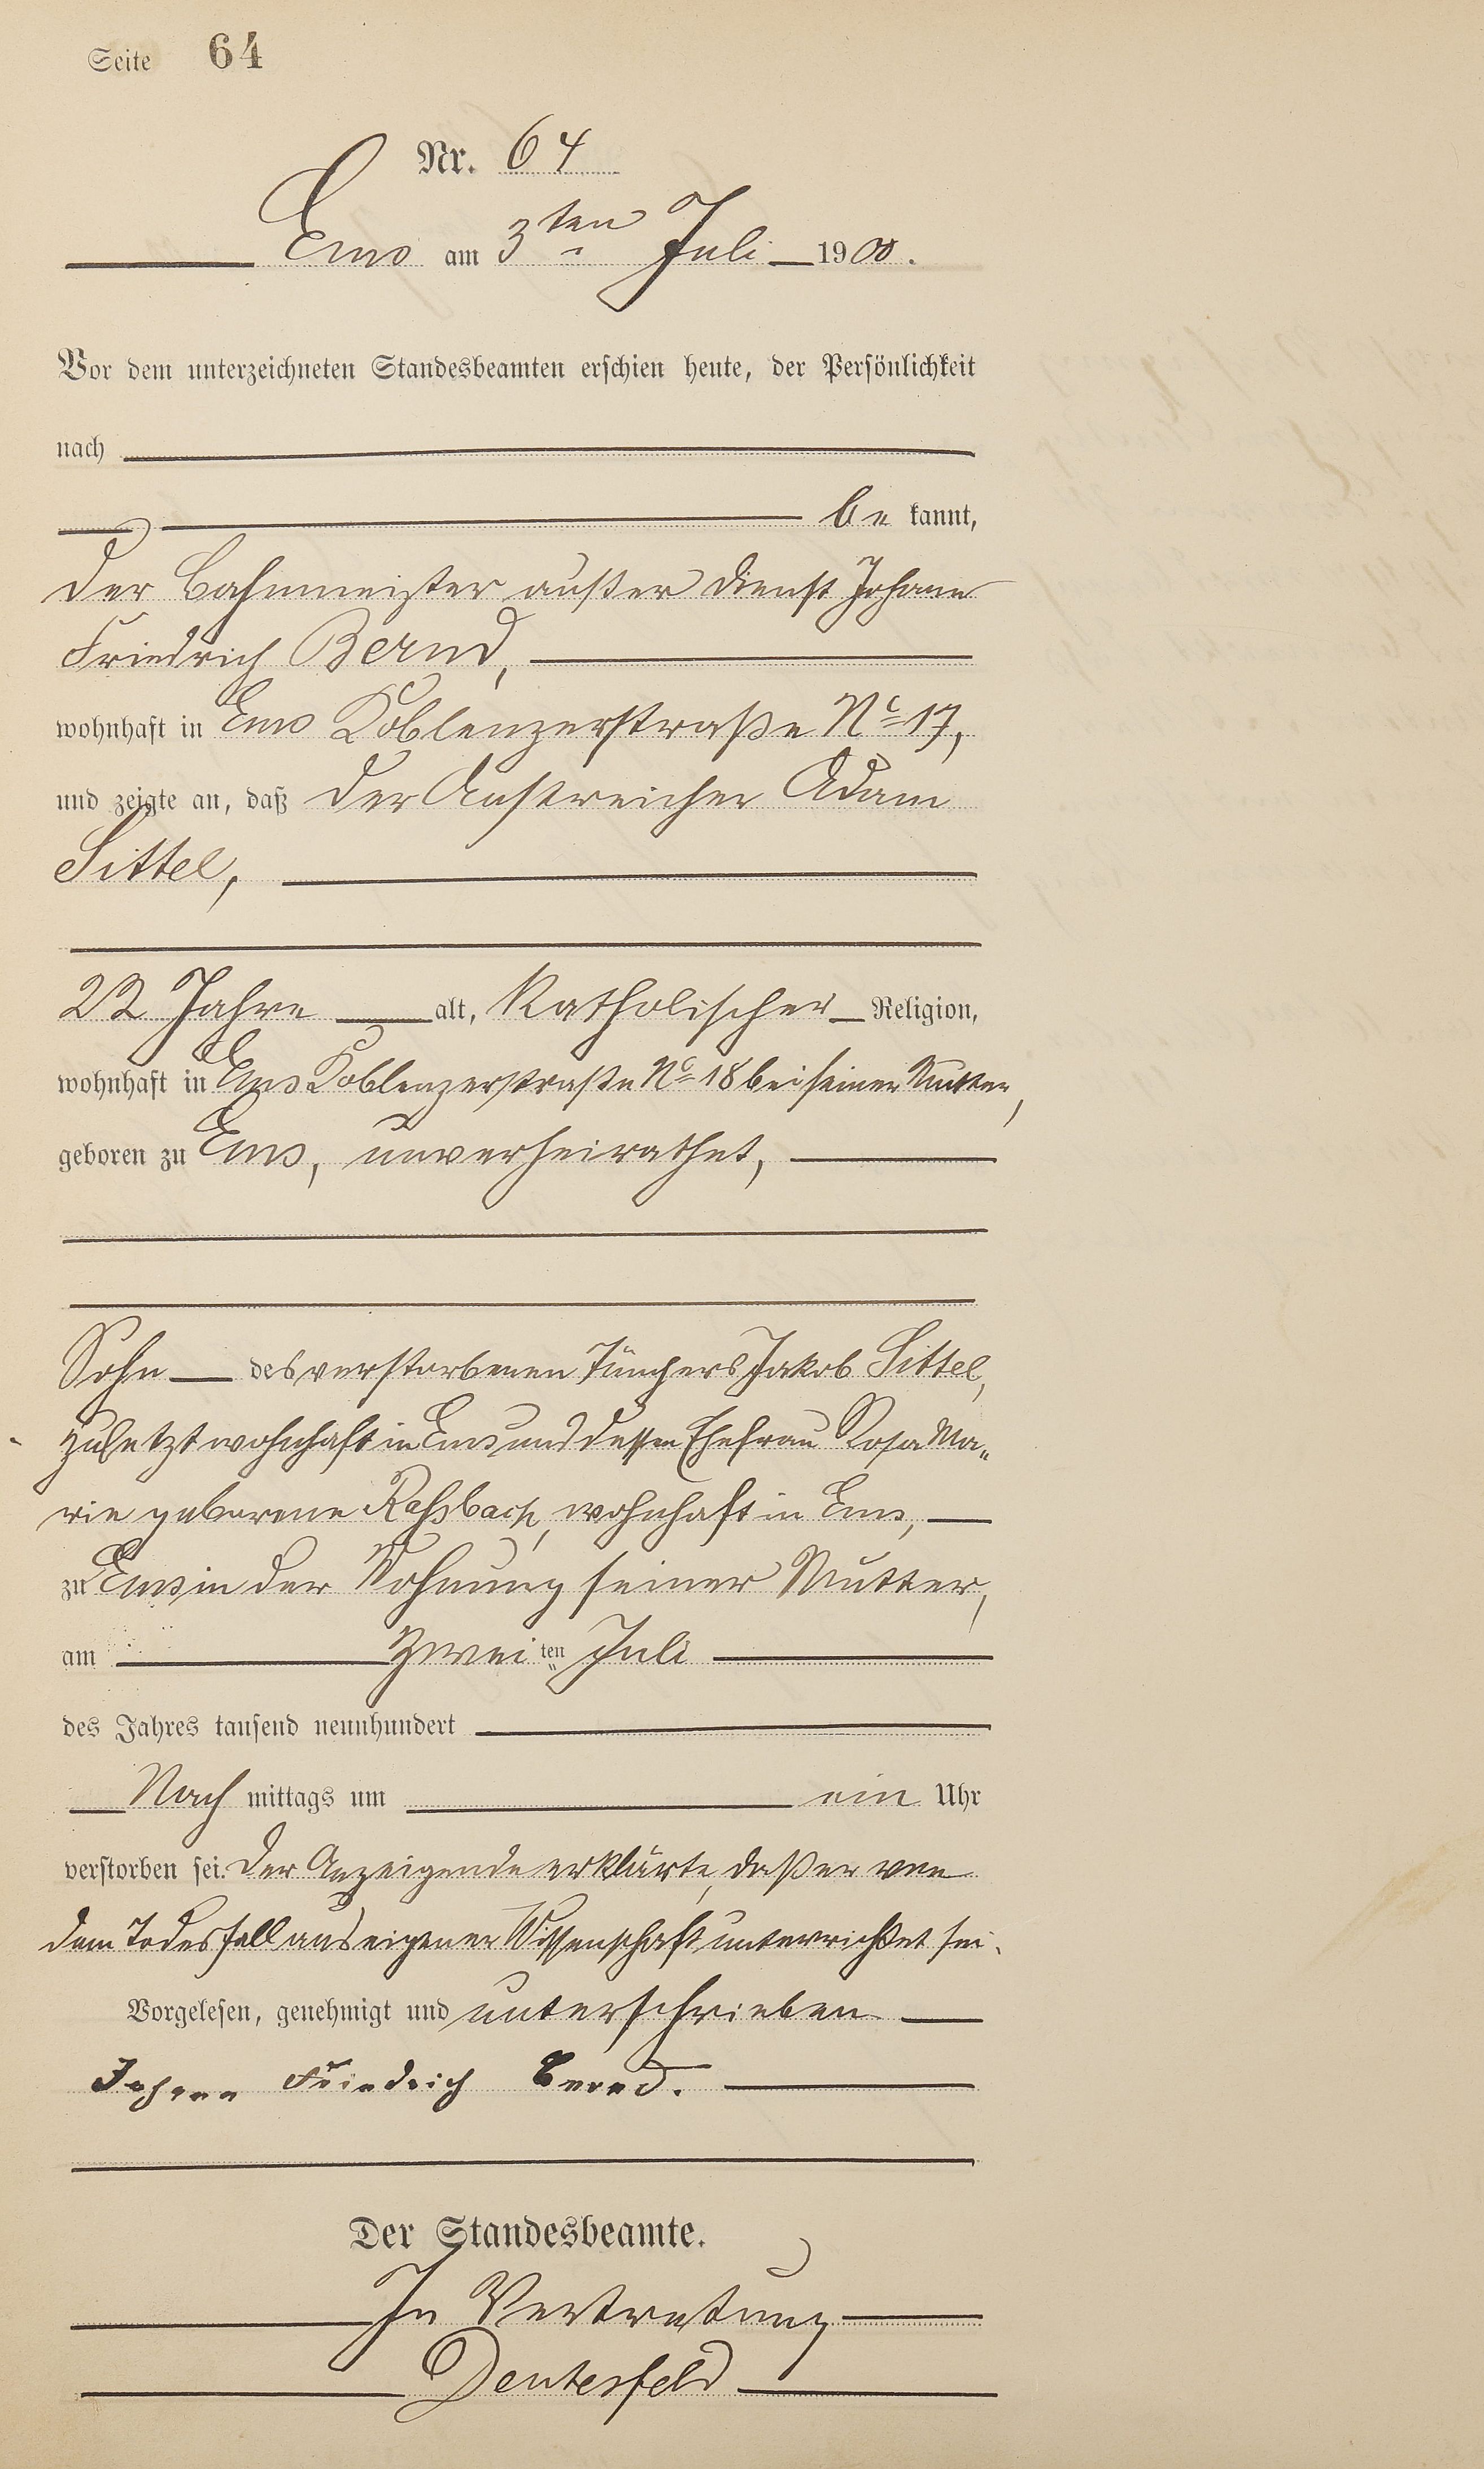 Seite 64
Nr. 64
Ems am 3ten Juli 1900.
Vor dem unterzeichneten Standesbeamten erschien heute, der Persönlichkeit
nach
be kannt,
der Bahnmeister außer Dienst Johann
Friedrich Bernd,
wohnhaft in Ems Koblenzerstraße No 17,
und zeigte an, daß der Anstreicher Adam
Sittel,
22 Jahre alt, Katholischer Religion,
wohnhaft in Ems Koblenzerstraße No 18 bei seiner Mutter,
geboren zu Ems, unverheirathet,
Sohn des verstorbenen Tünchers Jakob Sittel,
zuletzt wohnhaft in Ems und dessen Ehefrau Rosa Ma-
rie geborene Roßbach, wohnhaft in Ems,
zu Ems in der Wohnung seiner Mutter,
am zwei ten Juli
des Jahres tausend neunhundert
Nach mittags um ein Uhr
verstorben sei. Der Anzeigende erklärte, daß er von
dem Todesfall aus eigener Wissenschaft unterrichtet sei.
Vorgelesen, genehmigt und unterschrieben
Johann Friedrich Bernd.
Der Standesbeamte.
In Vertretung